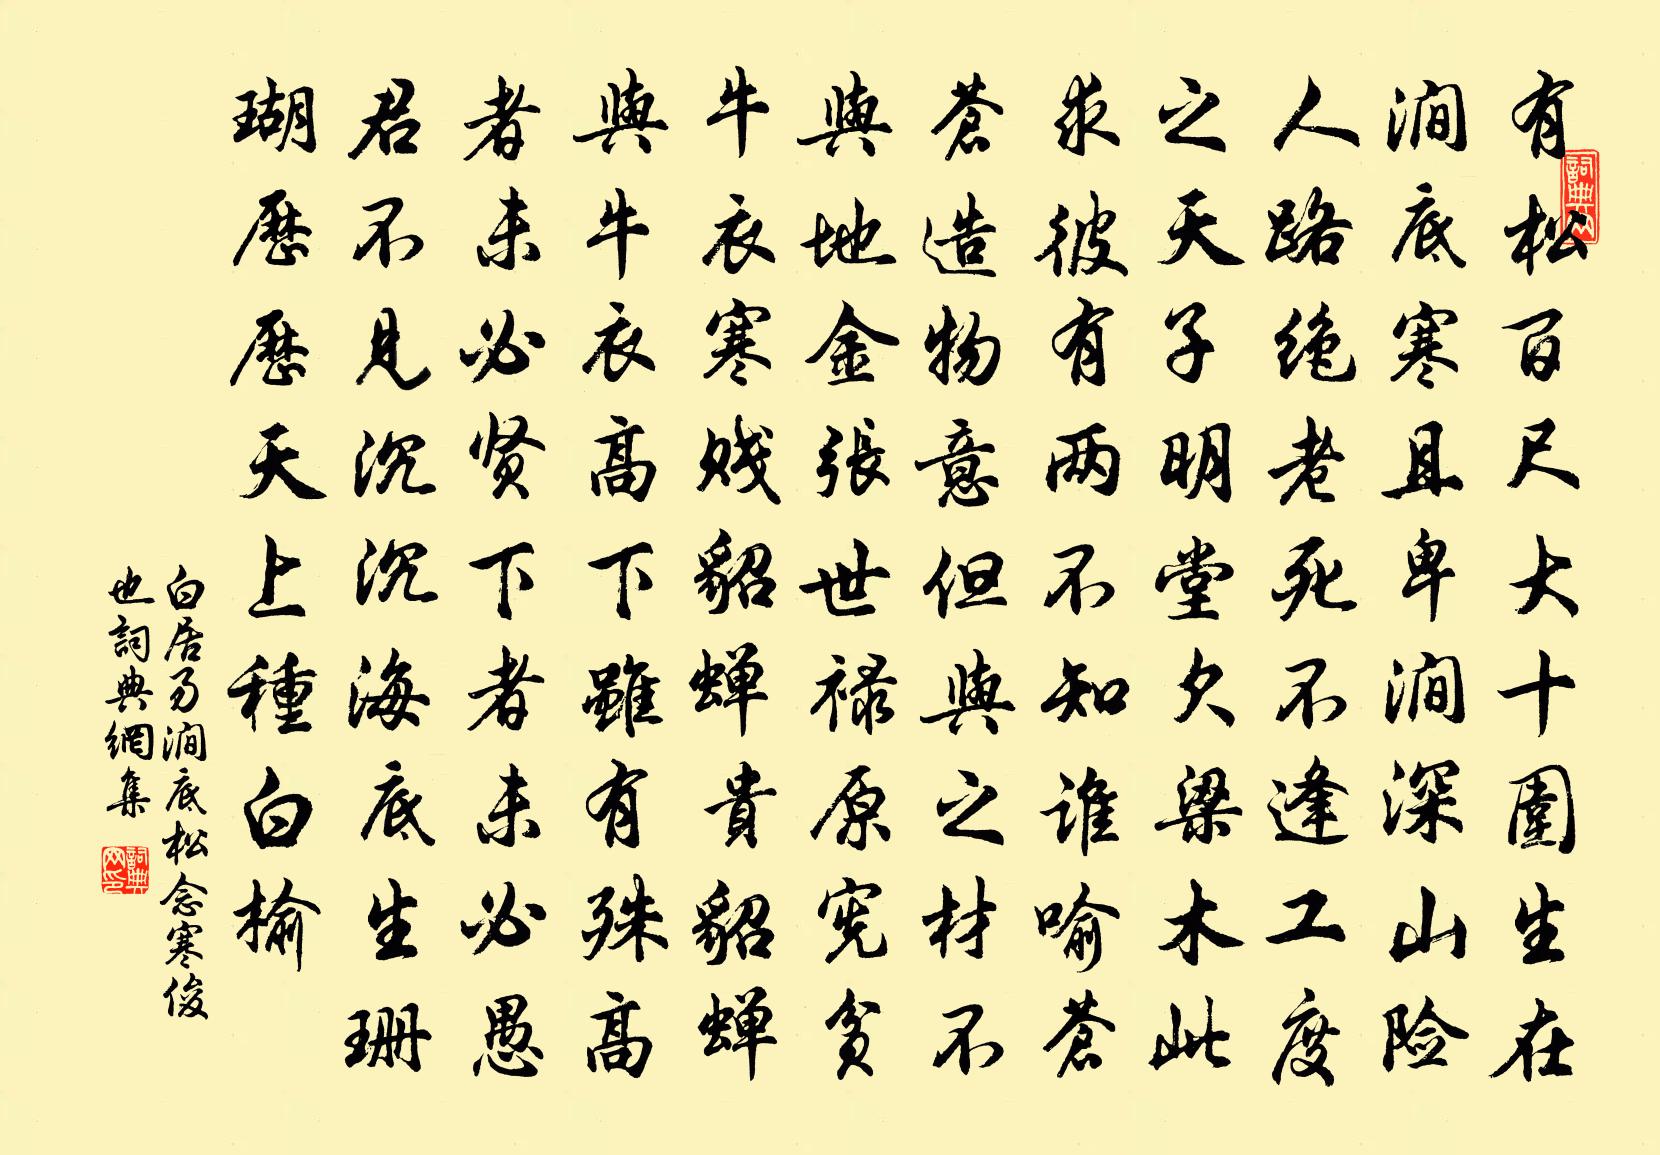 詞典网
有松百尺大十圍生在
澗底寒且卑澗深山险
人路绝老死不逢工度
之天子明堂欠梁木此
求彼有两不知谁喻蒼
蒼造物意但與之材不
與地金張世禄原宪贫
牛衣寒贱貂蝉貴貂蝉
與牛衣高下雖有殊高
者未必贤下者未必愚
君不見沉沉海底生珊
瑚歷歷天上種白榆
白居易澗底松念寒俊
也詞典網集
詞典网印